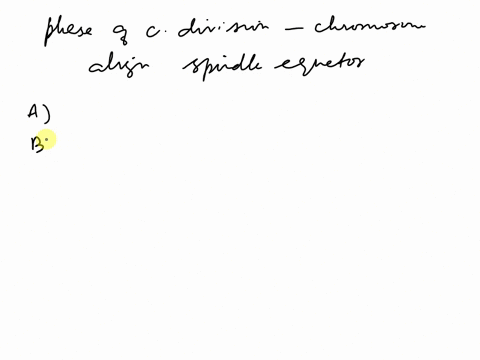 phese of c. division – chromosom
align spindle equetor
A)
B